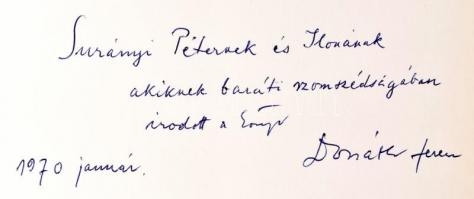 Surányi Péternek és Ilonának
akiknek baráti szomszédságában
irodott a könyv
Donáth Ferenc
1970 január.